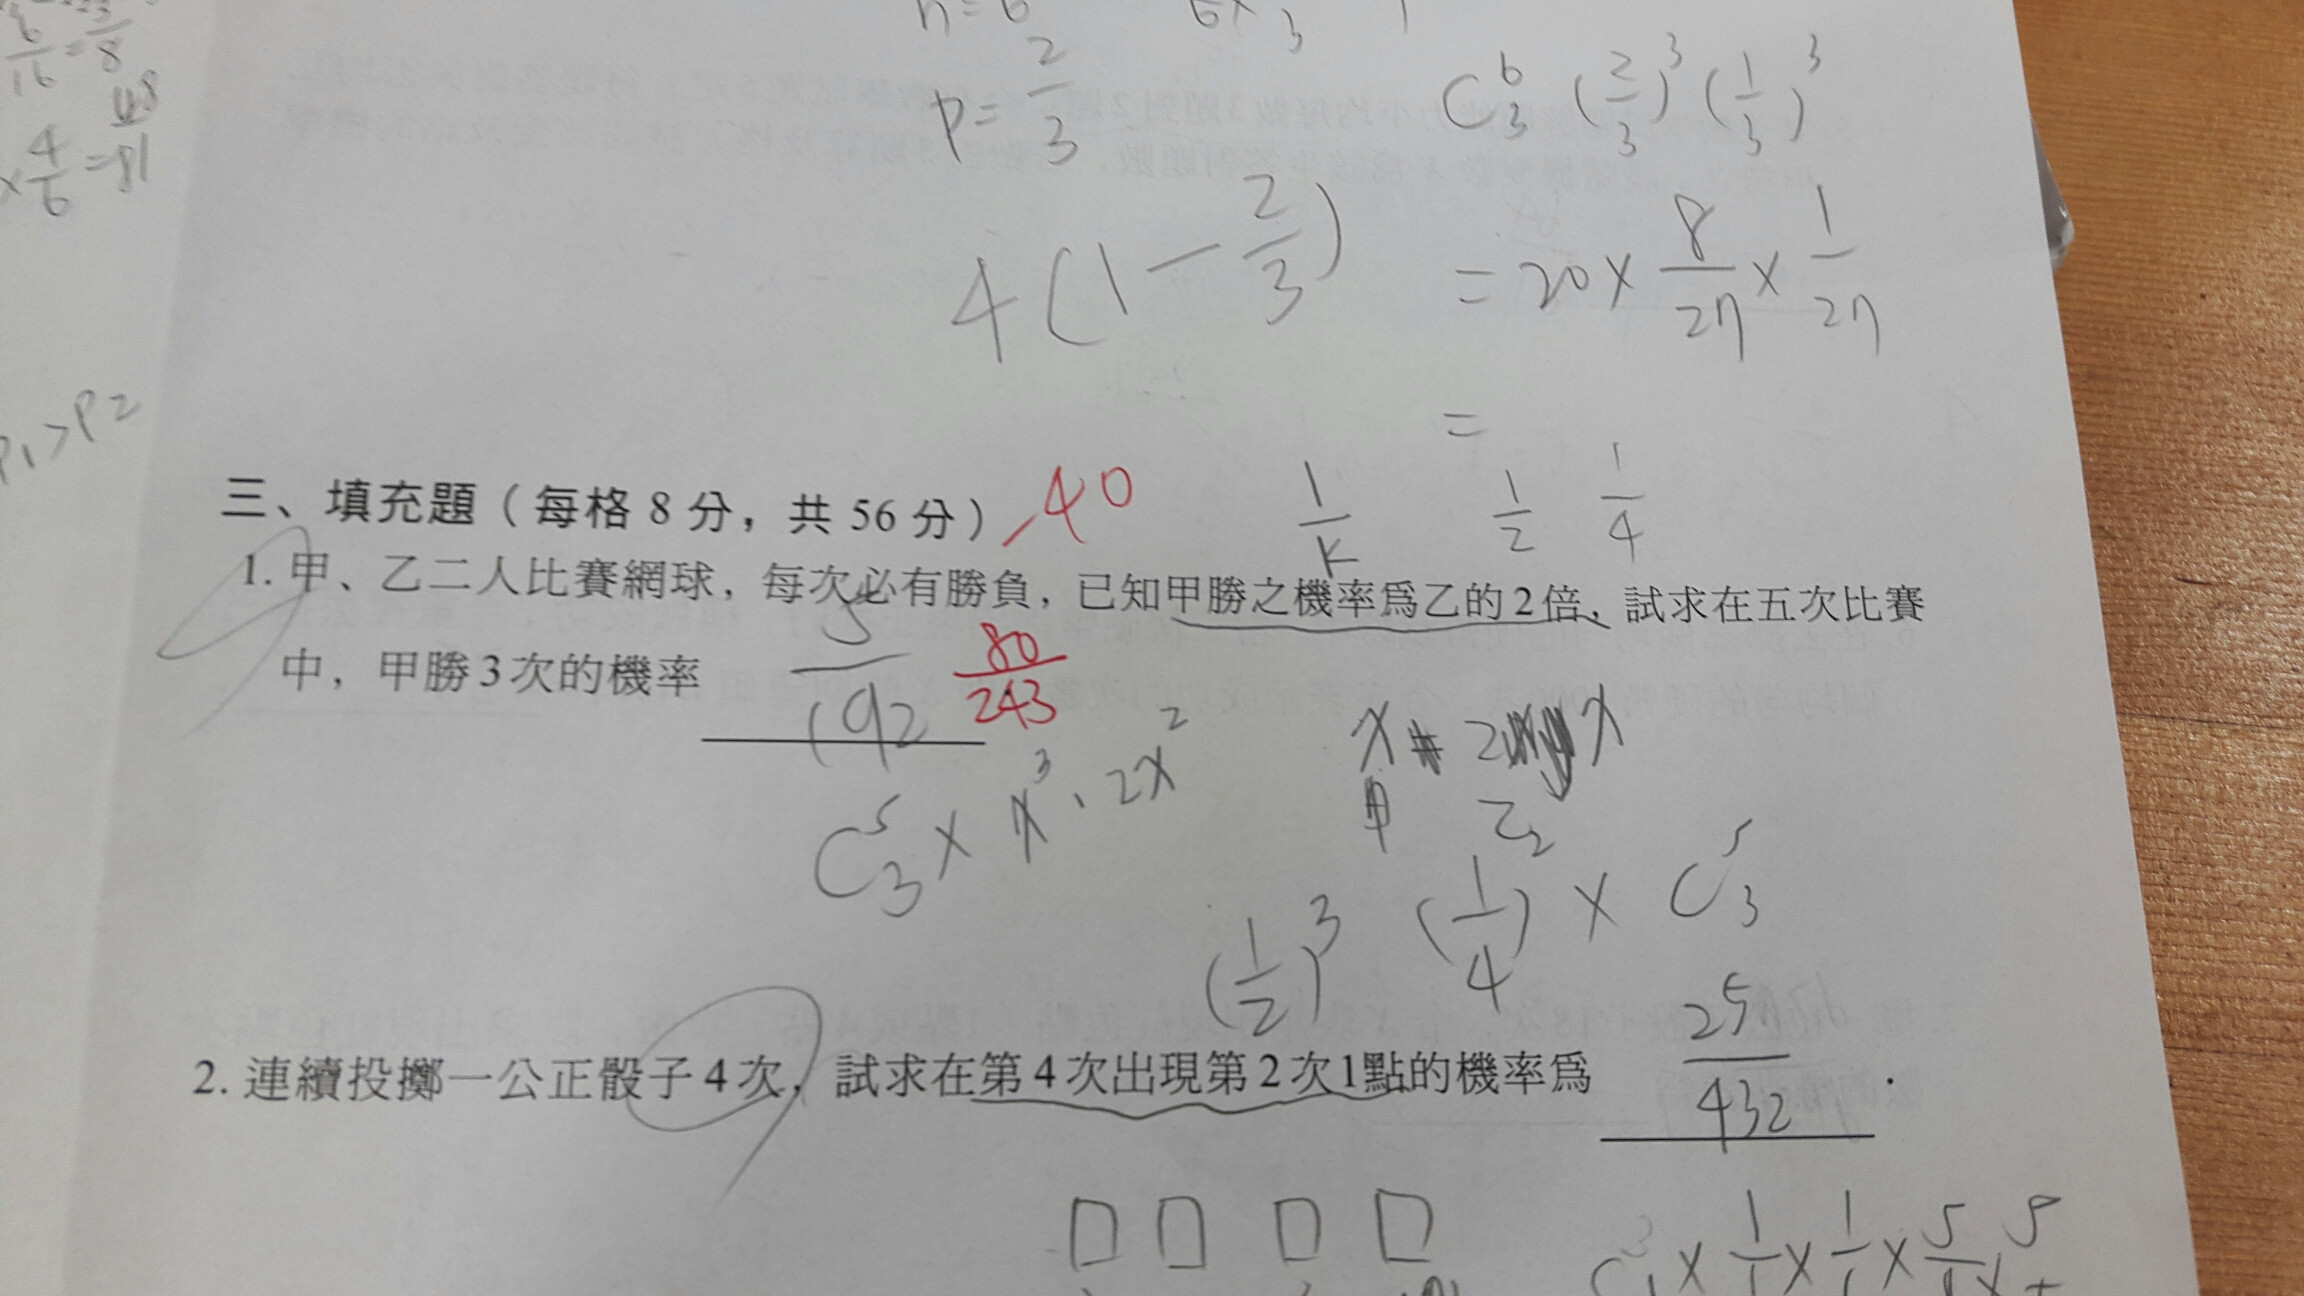 n=6
p=2/3
C⁶₃ (2/3)³ (1/3)³
4(1-2/3)
= 20 × 8/27 × 1/27
=
×4/6=81
P₁>P₂
三、填充題（每格 8 分，共 56 分） -40
1/k 1/2 1/4
1. 甲、乙二人比賽網球，每次必有勝負，已知甲勝之機率為乙的 2 倍，試求在五次比賽
中，甲勝 3 次的機率 5/192 80/243
C⁵₃ × x³ · 2x²
x 2 x
甲 乙
(1/2)³ (1/4)² × C⁵₃
2. 連續投擲一公正骰子 4 次，試求在第 4 次出現第 2 次 1 點的機率為 25/432 .